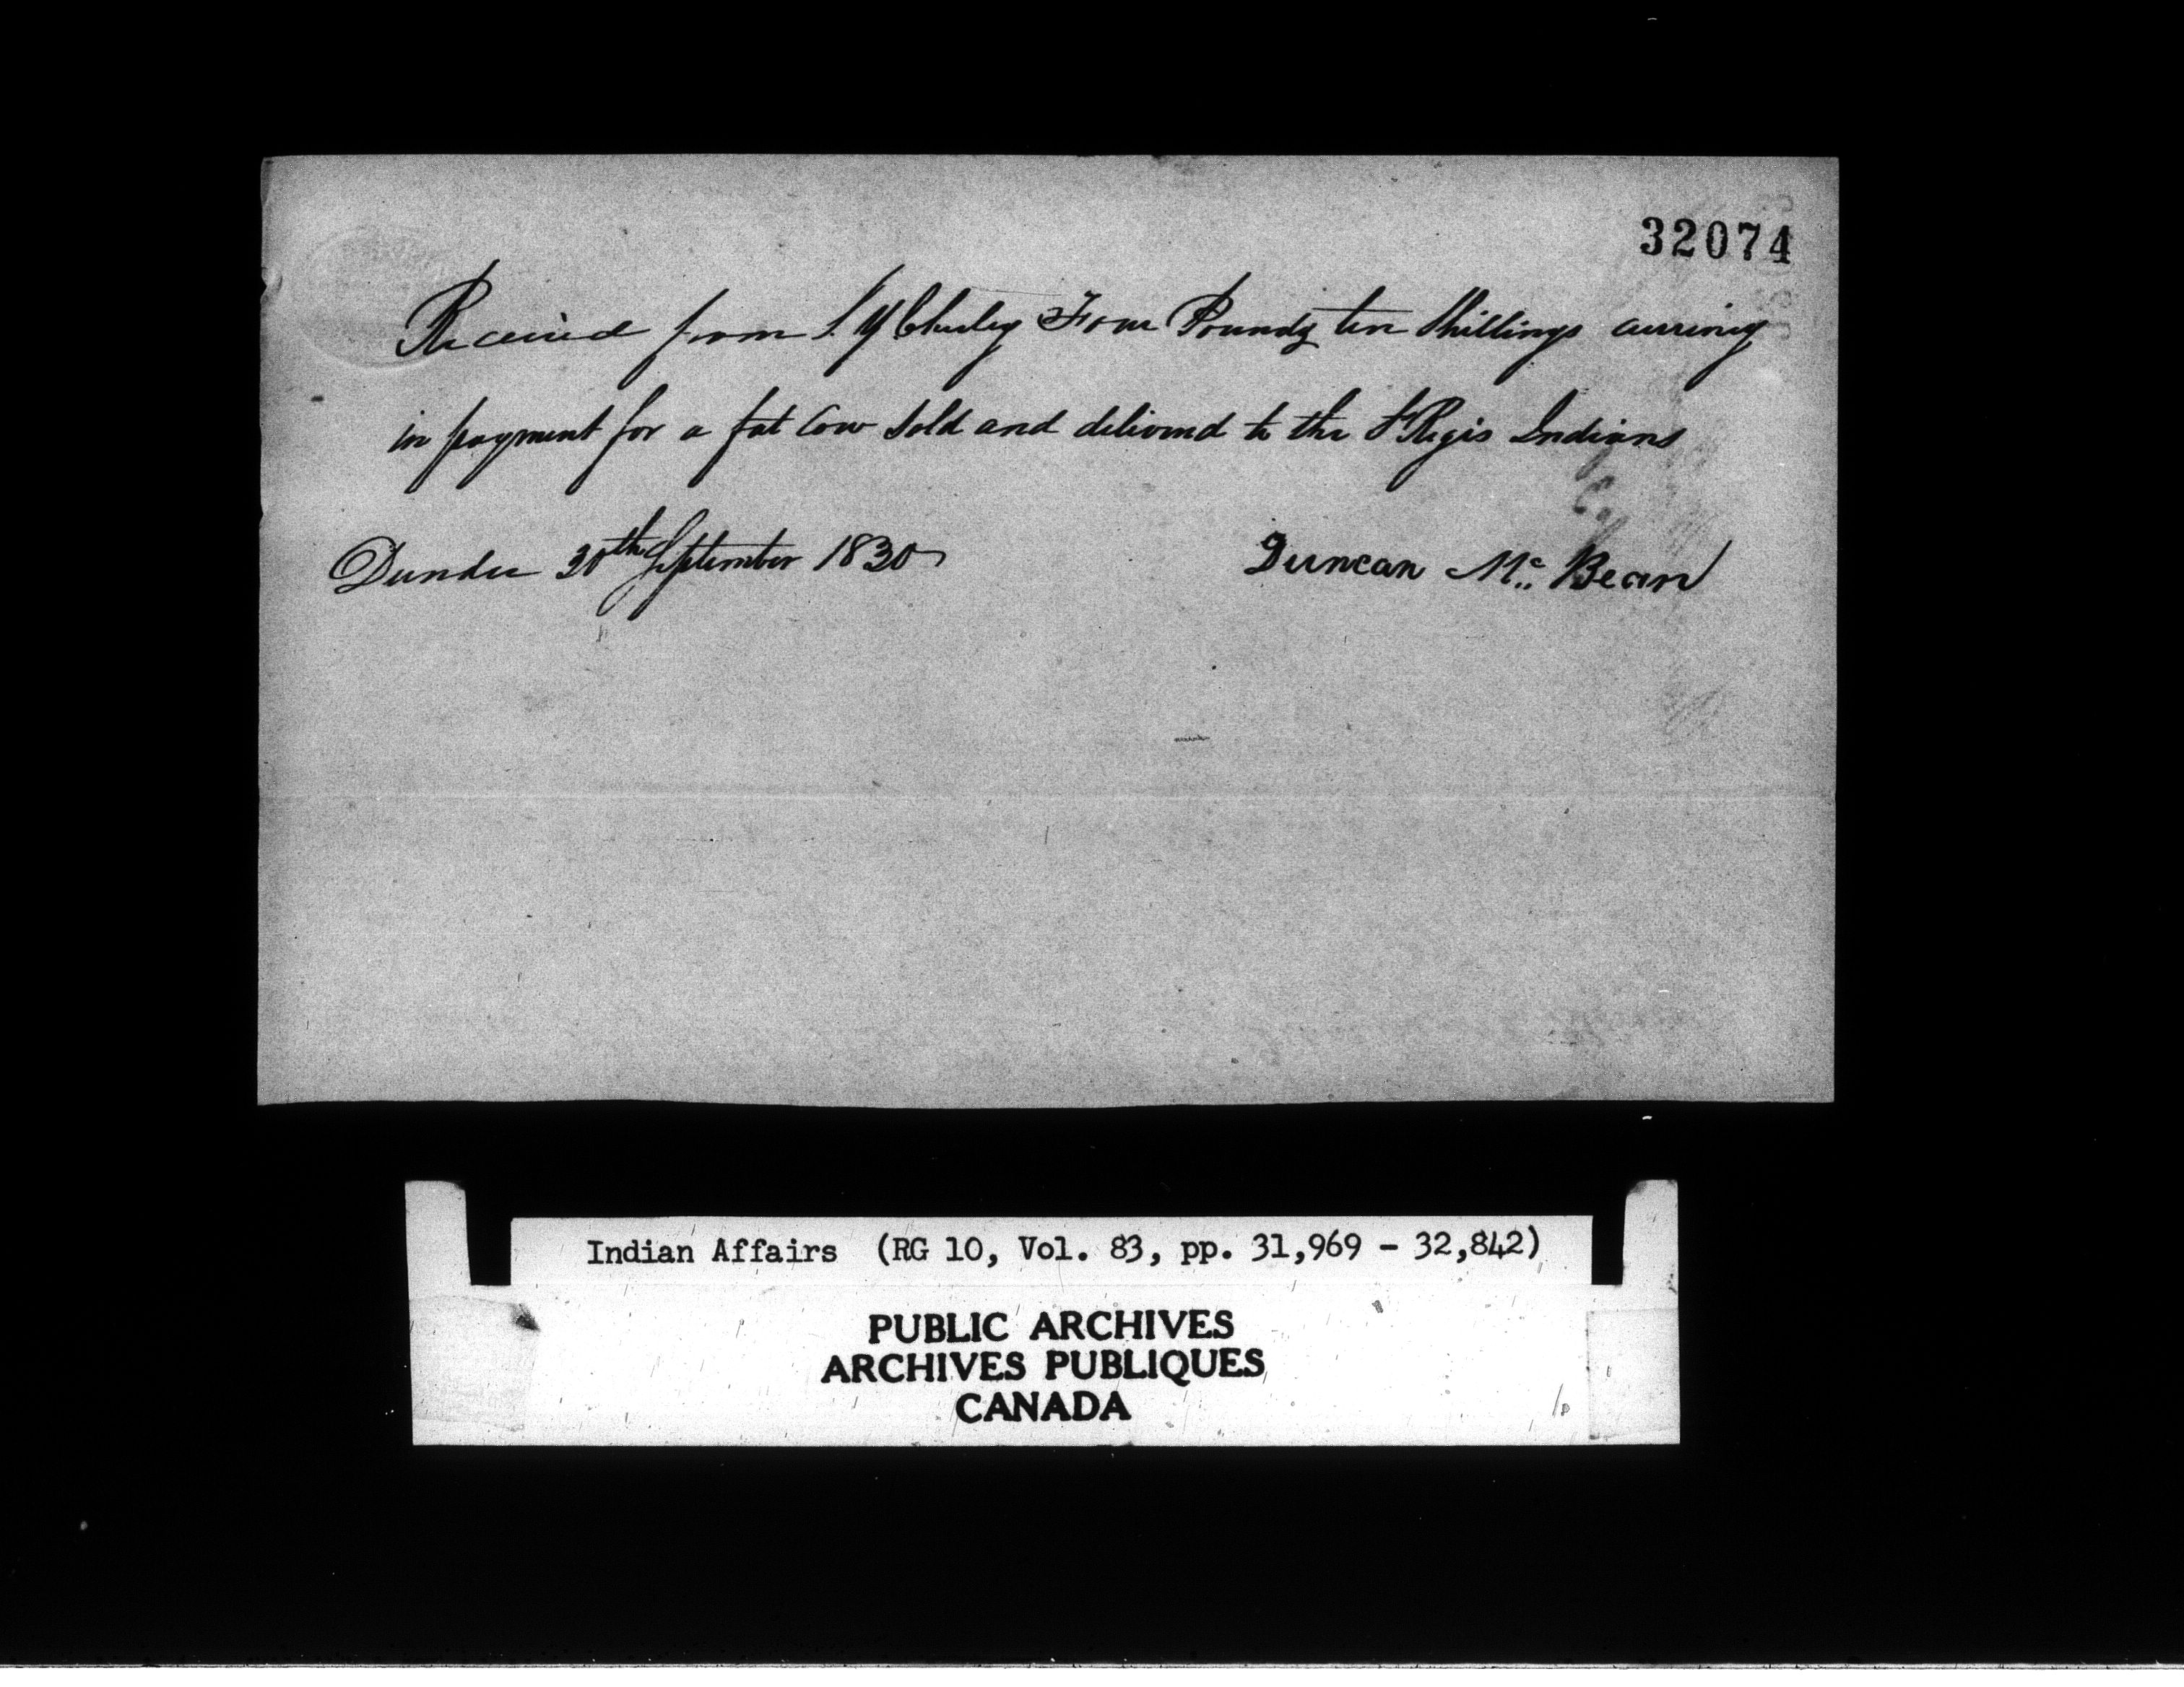 32074
Received from S. Y. Chesley Four Pounds ten Shillings currency
in payment for a fat Cow Sold and delivered to the St Regis Indians
Dundee 30th September 1830
Duncan Mc Bean
Indian Affairs (RG 10, Vol. 83, pp. 31,969 - 32,842)
PUBLIC ARCHIVES
ARCHIVES PUBLIQUES
CANADA